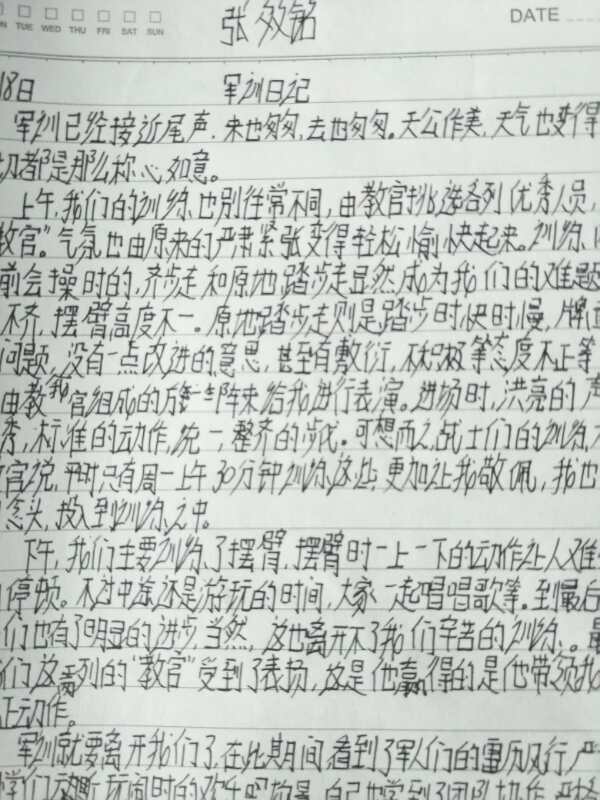 TUE WED THU FRI SAT SUN
张效铭
DATE
18日 军训日记
军训已经接近尾声,来也匆匆,去也匆匆。天公作美,天气也变得
切都是那么称心如意。
上午,我们的训练也别往常不同,由教官挑选各列优秀人员,
教官"。气氛也由原来的严肃紧张变得轻松愉快起来。训练
前会操时的,齐步走和原地踏步走显然成为我们的难题
不齐,摆臂高度不一。原地踏步走则是踏步时快时慢,
问题,没有一点改进的意思,甚至有敷衍,不积极等态度不正等
由教官组成的方阵来给我进行表演。进场时,洪亮的声
秀,标准的动作,统一,整齐的步伐。可想而之,战士们的训练
教官说,平时只有周一上午30分钟训练这些,更加让我敬佩,我也
念头,投入到训练之中。
下午,我们主要训练了摆臂,摆臂时一上一下的动作让人难
停顿。不过中途还是游玩的时间,大家一起唱唱歌等。到最后
们也有了明显的进步,当然,这也离开不了我们辛苦的训练。最
们这列的"教官"受到了表扬,这是他赢得的是他带领我
上动作。
军训就要离开我们了,在此期间,看到了军人们的雷历风行,严
自己也学到了团队协作,严格